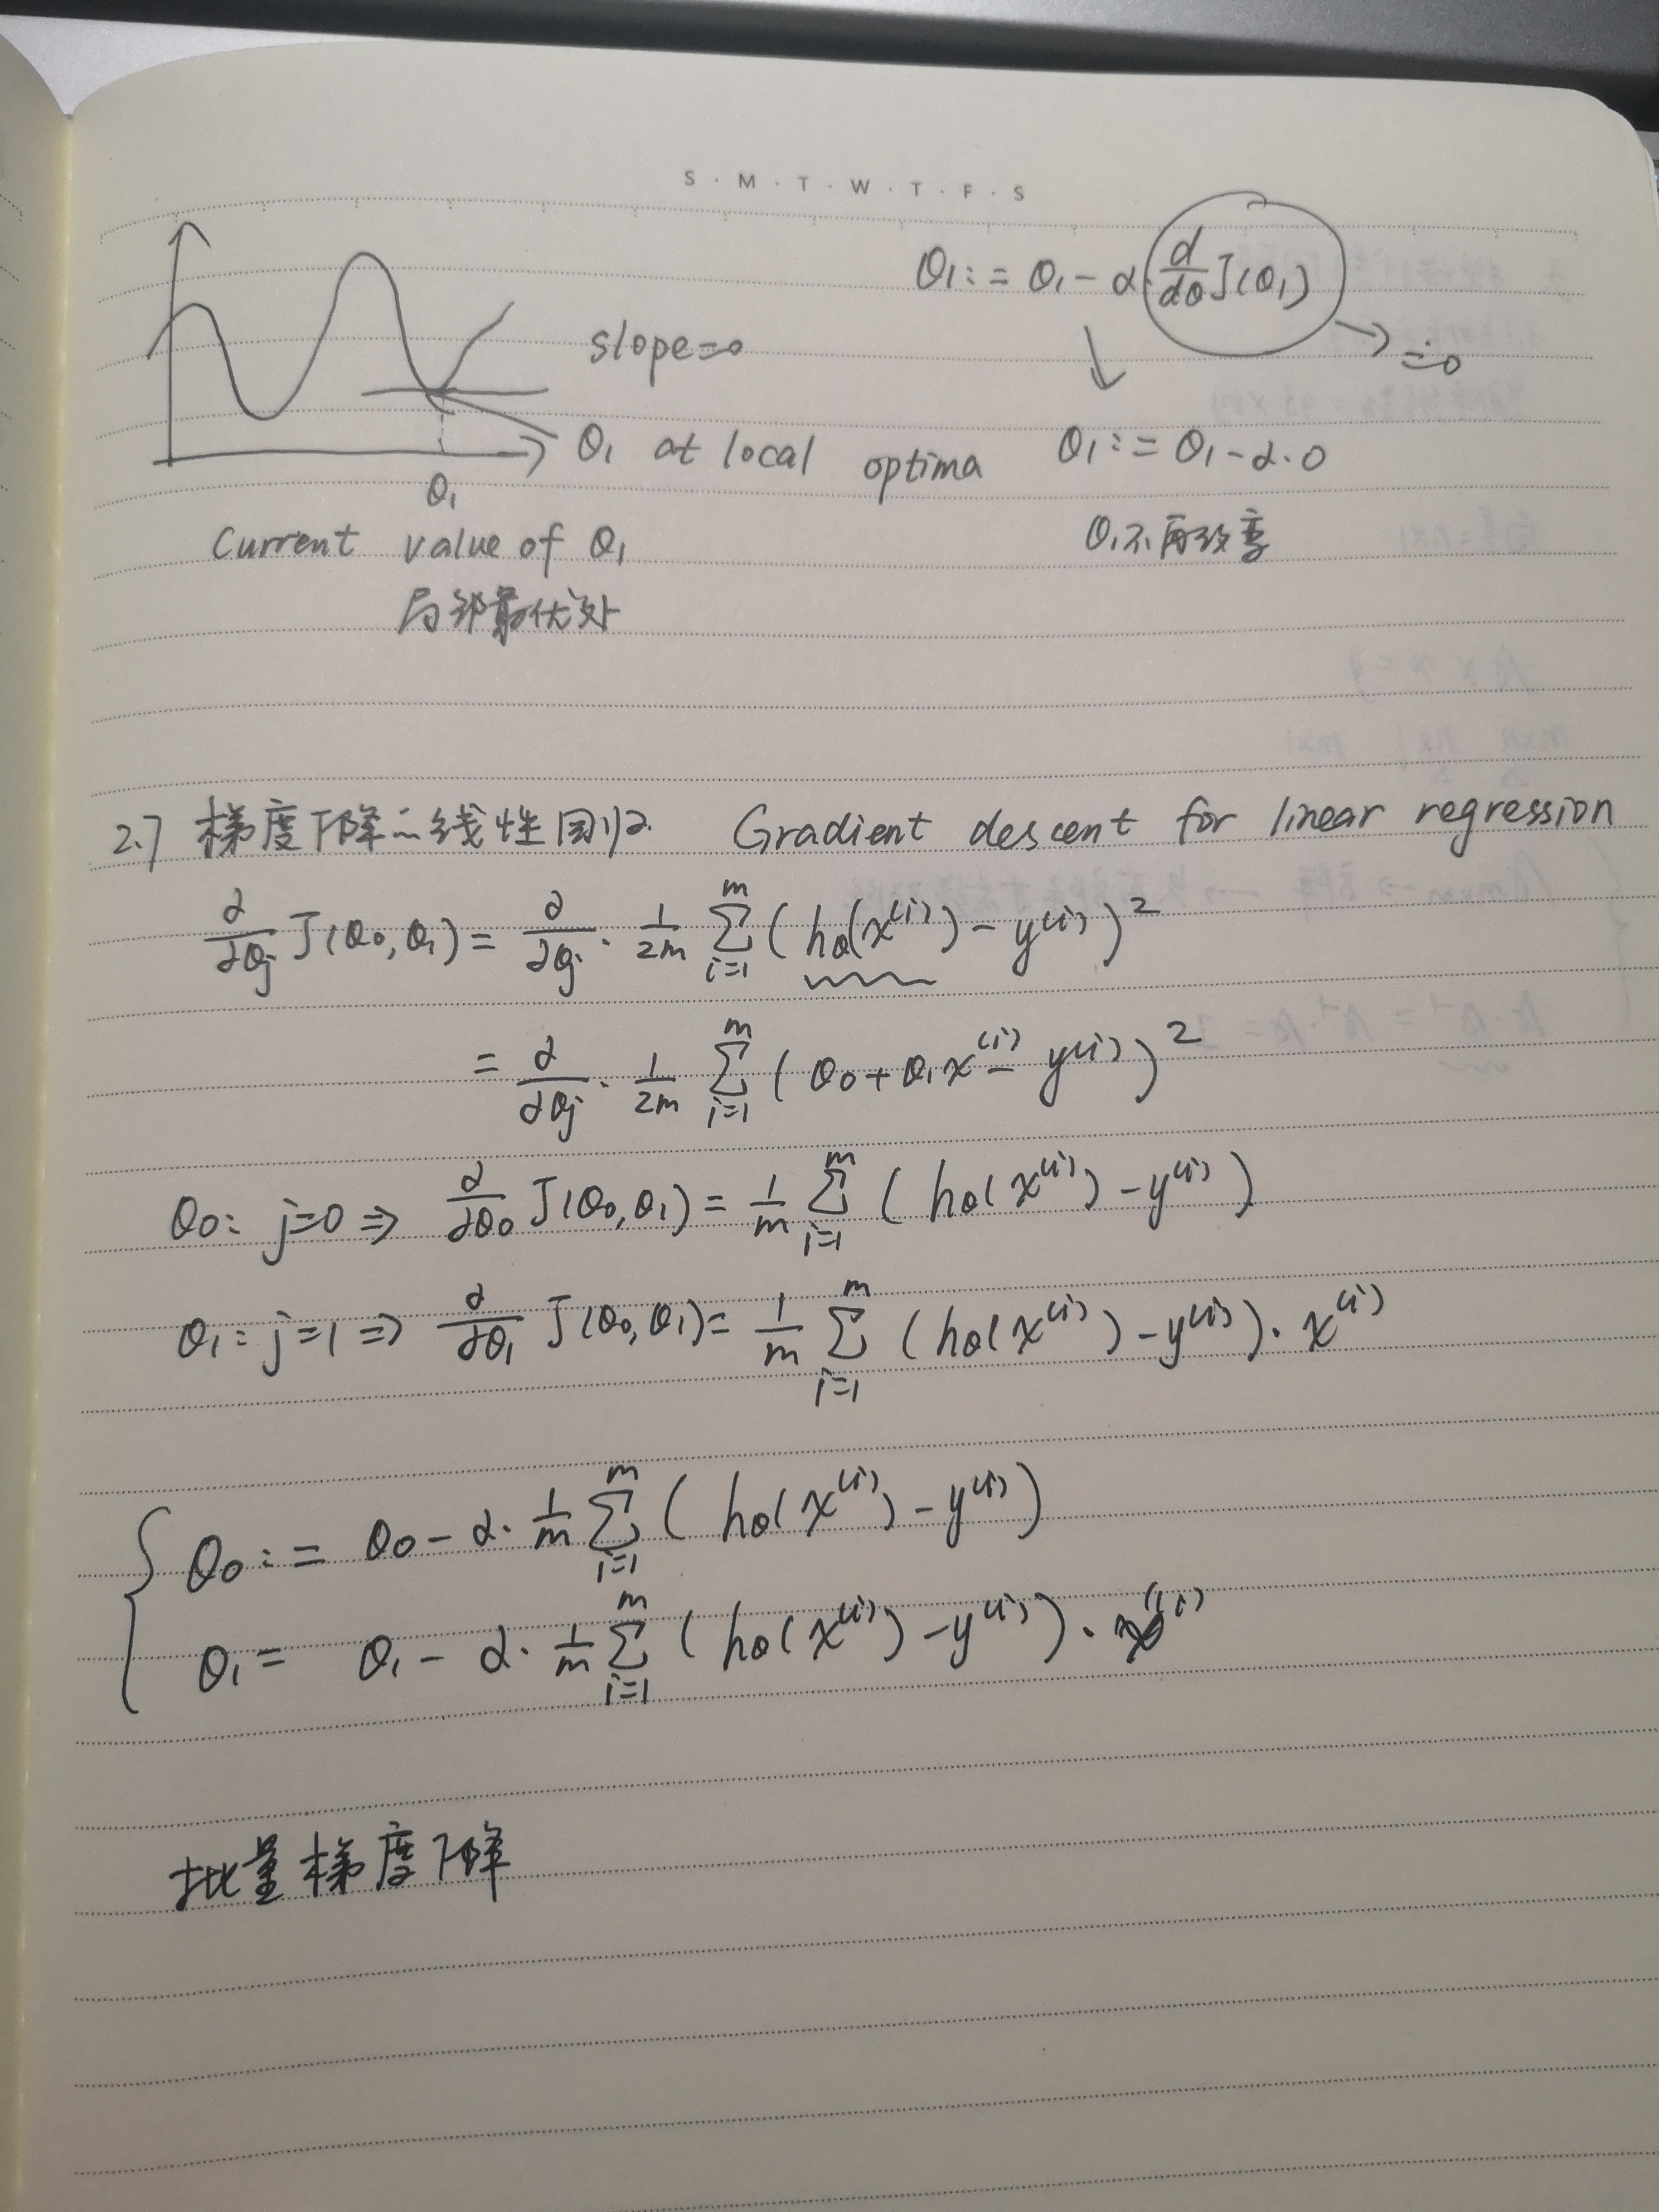 S · M · T · W · T · F · S
θ₁ := θ₁ - α · d/dθ J(θ₁)
=0
slope=0
θ₁ at local optima
θ₁ := θ₁ - α · 0
θ₁
θ₁不再改变
Current value of θ₁
局部最优处
2.7 梯度下降の线性回归 Gradient descent for linear regression
∂/∂θj J(θ₀,θ₁) = ∂/∂θj · 1/2m Σ_{i=1}^{m} (hθ(x⁽ⁱ⁾) - y⁽ⁱ⁾)²
= ∂/∂θj · 1/2m Σ_{i=1}^{m} (θ₀ + θ₁x⁽ⁱ⁾ - y⁽ⁱ⁾)²
θ₀: j=0 ⇒ ∂/∂θ₀ J(θ₀,θ₁) = 1/m Σ_{i=1}^{m} (hθ(x⁽ⁱ⁾) - y⁽ⁱ⁾)
θ₁: j=1 ⇒ ∂/∂θ₁ J(θ₀,θ₁) = 1/m Σ_{i=1}^{m} (hθ(x⁽ⁱ⁾) - y⁽ⁱ⁾) · x⁽ⁱ⁾
θ₀ := θ₀ - α · 1/m Σ_{i=1}^{m} (hθ(x⁽ⁱ⁾) - y⁽ⁱ⁾)
θ₁ = θ₁ - α · 1/m Σ_{i=1}^{m} (hθ(x⁽ⁱ⁾) - y⁽ⁱ⁾) · x⁽ⁱ⁾
批量梯度下降